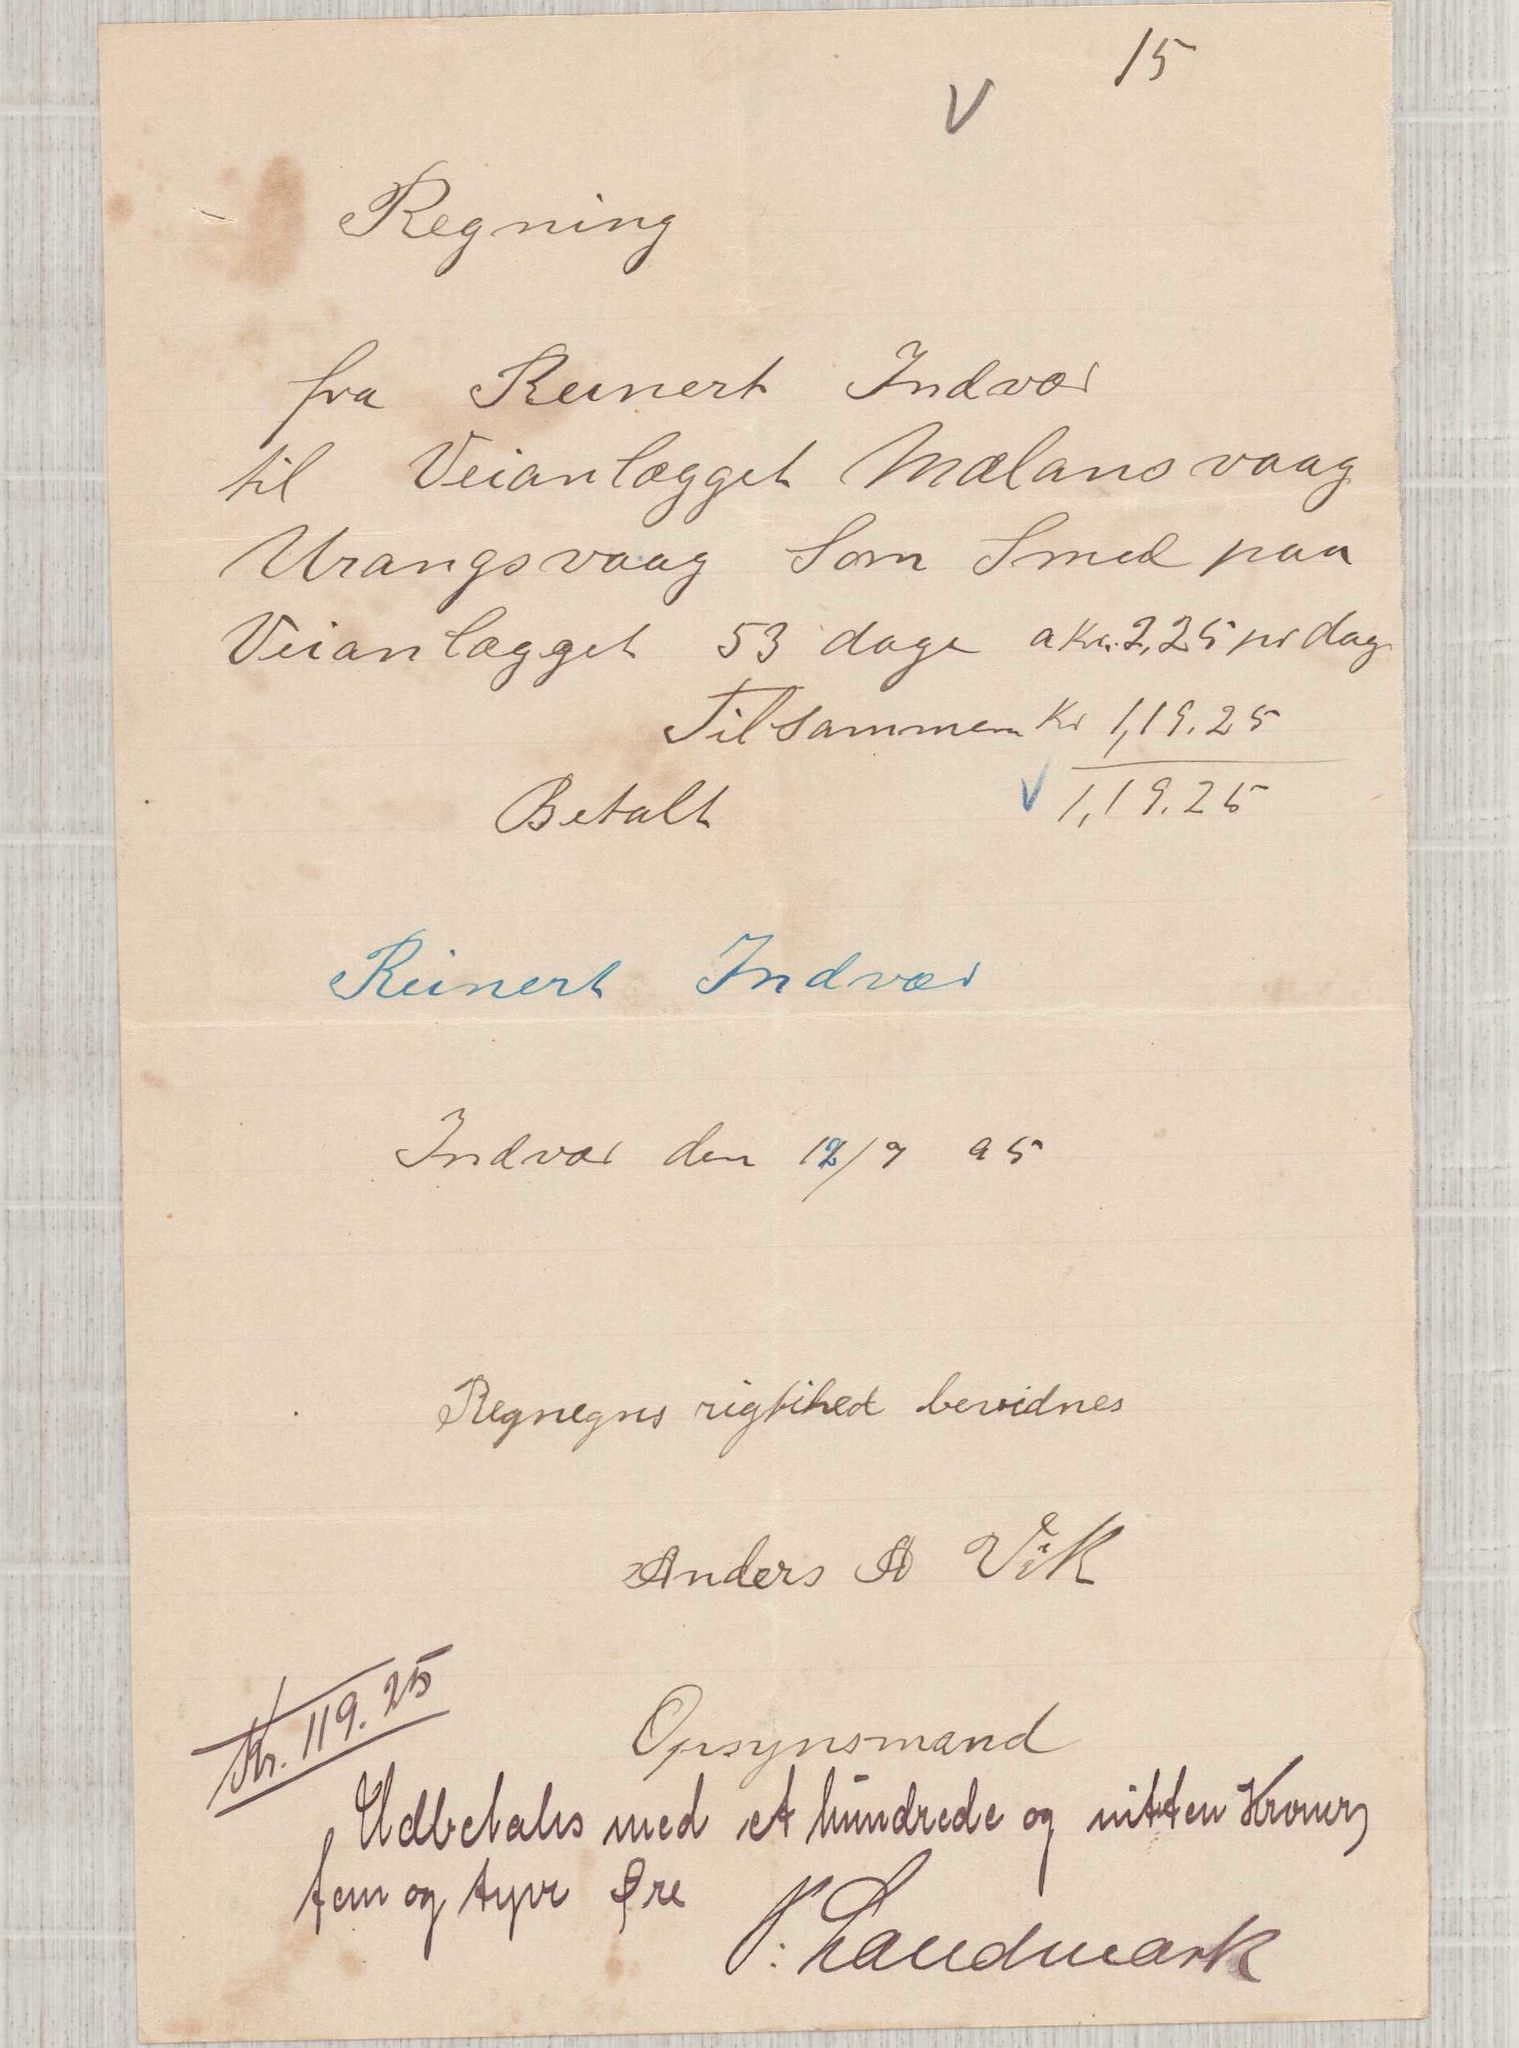 15
V
Regning
fra Reinert Indvær
til Veianlægget Mælansvaag
Urangsvaag som Smed paa
Veianlægget 53 dage a Kr. 2,25 pr dag
Tilsammen Kr 1,19.25
Betalt V 1,19.25
Reinert Indvær
Indvær den 12/9 95
Regnegns rigtihed bevidnes
Anders A Vik
Opsynsmand
Kr. 119.25
Udbetales med et hundrede og nitten Kroner,
fem og tyve Øre
P. Landmark